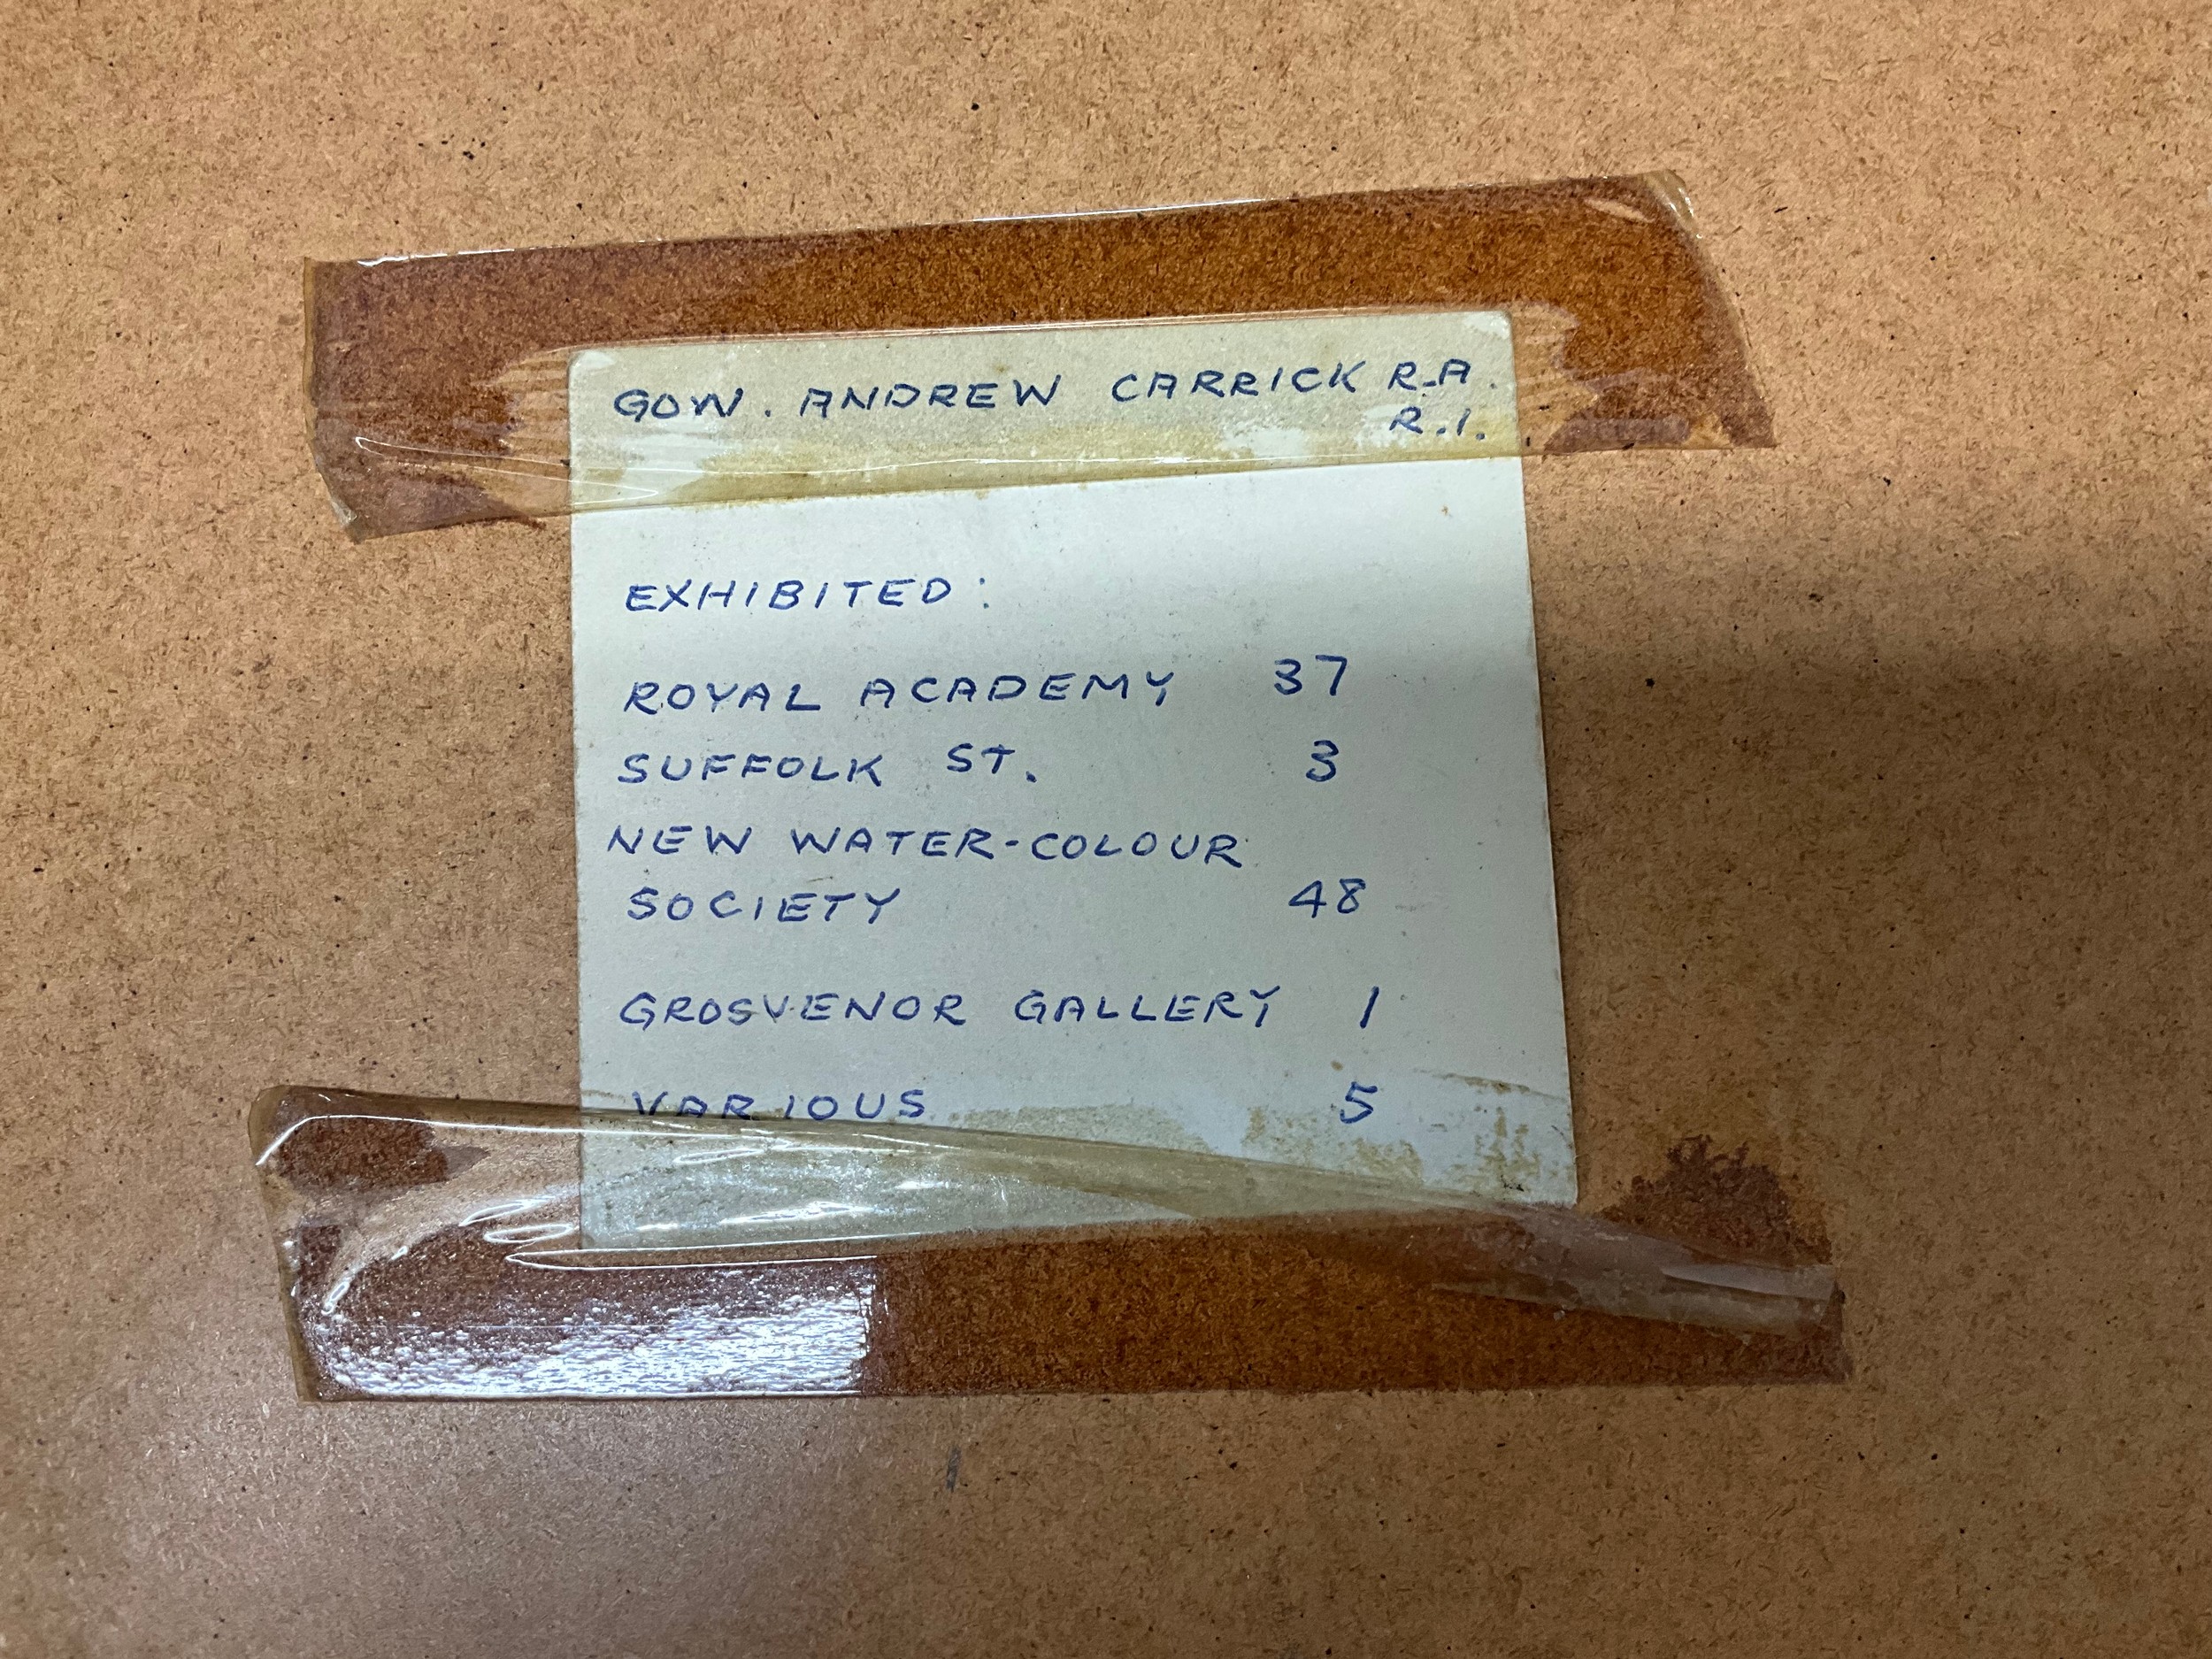 GOW. ANDREW CARRICK R.A.
R.I.
EXHIBITED:
ROYAL ACADEMY 37
SUFFOLK ST. 3
NEW WATER-COLOUR
SOCIETY 48
GROSVENOR GALLERY 1
VARIOUS 5